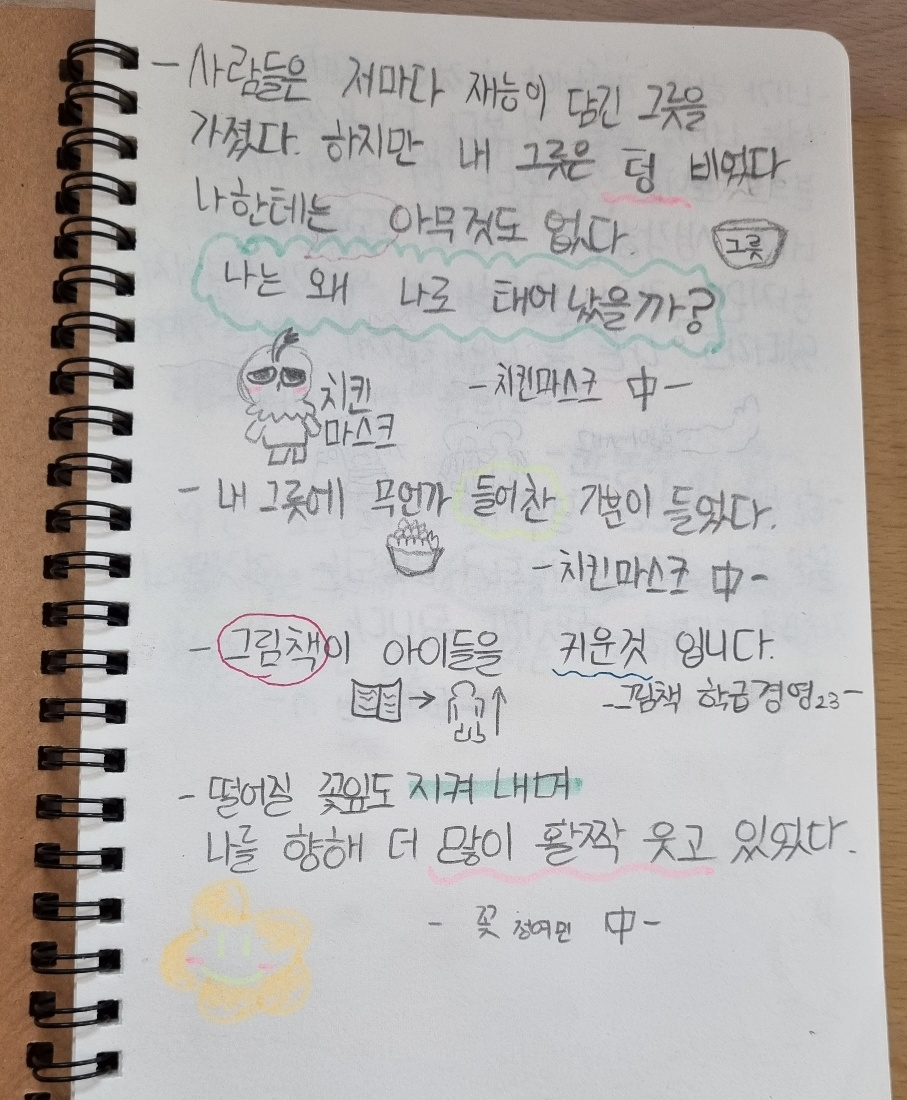 - 사람들은 저마다 재능이 담긴 그릇을
가졌다. 하지만 내 그릇은 텅 비었다
나한테는 아무것도 없다.
그릇
나는 왜 나로 태어났을까?
치킨
마스크
- 치킨마스크 中 -
- 내 그릇에 무언가 들어찬 기분이 들었다.
- 치킨마스크 中 -
- 그림책이 아이들을 키운것 입니다.
- 그림책 학급경영23 -
- 떨어질 꽃잎도 지켜 내며
나를 향해 더 많이 활짝 웃고 있었다.
- 꽃 정여민 中 -